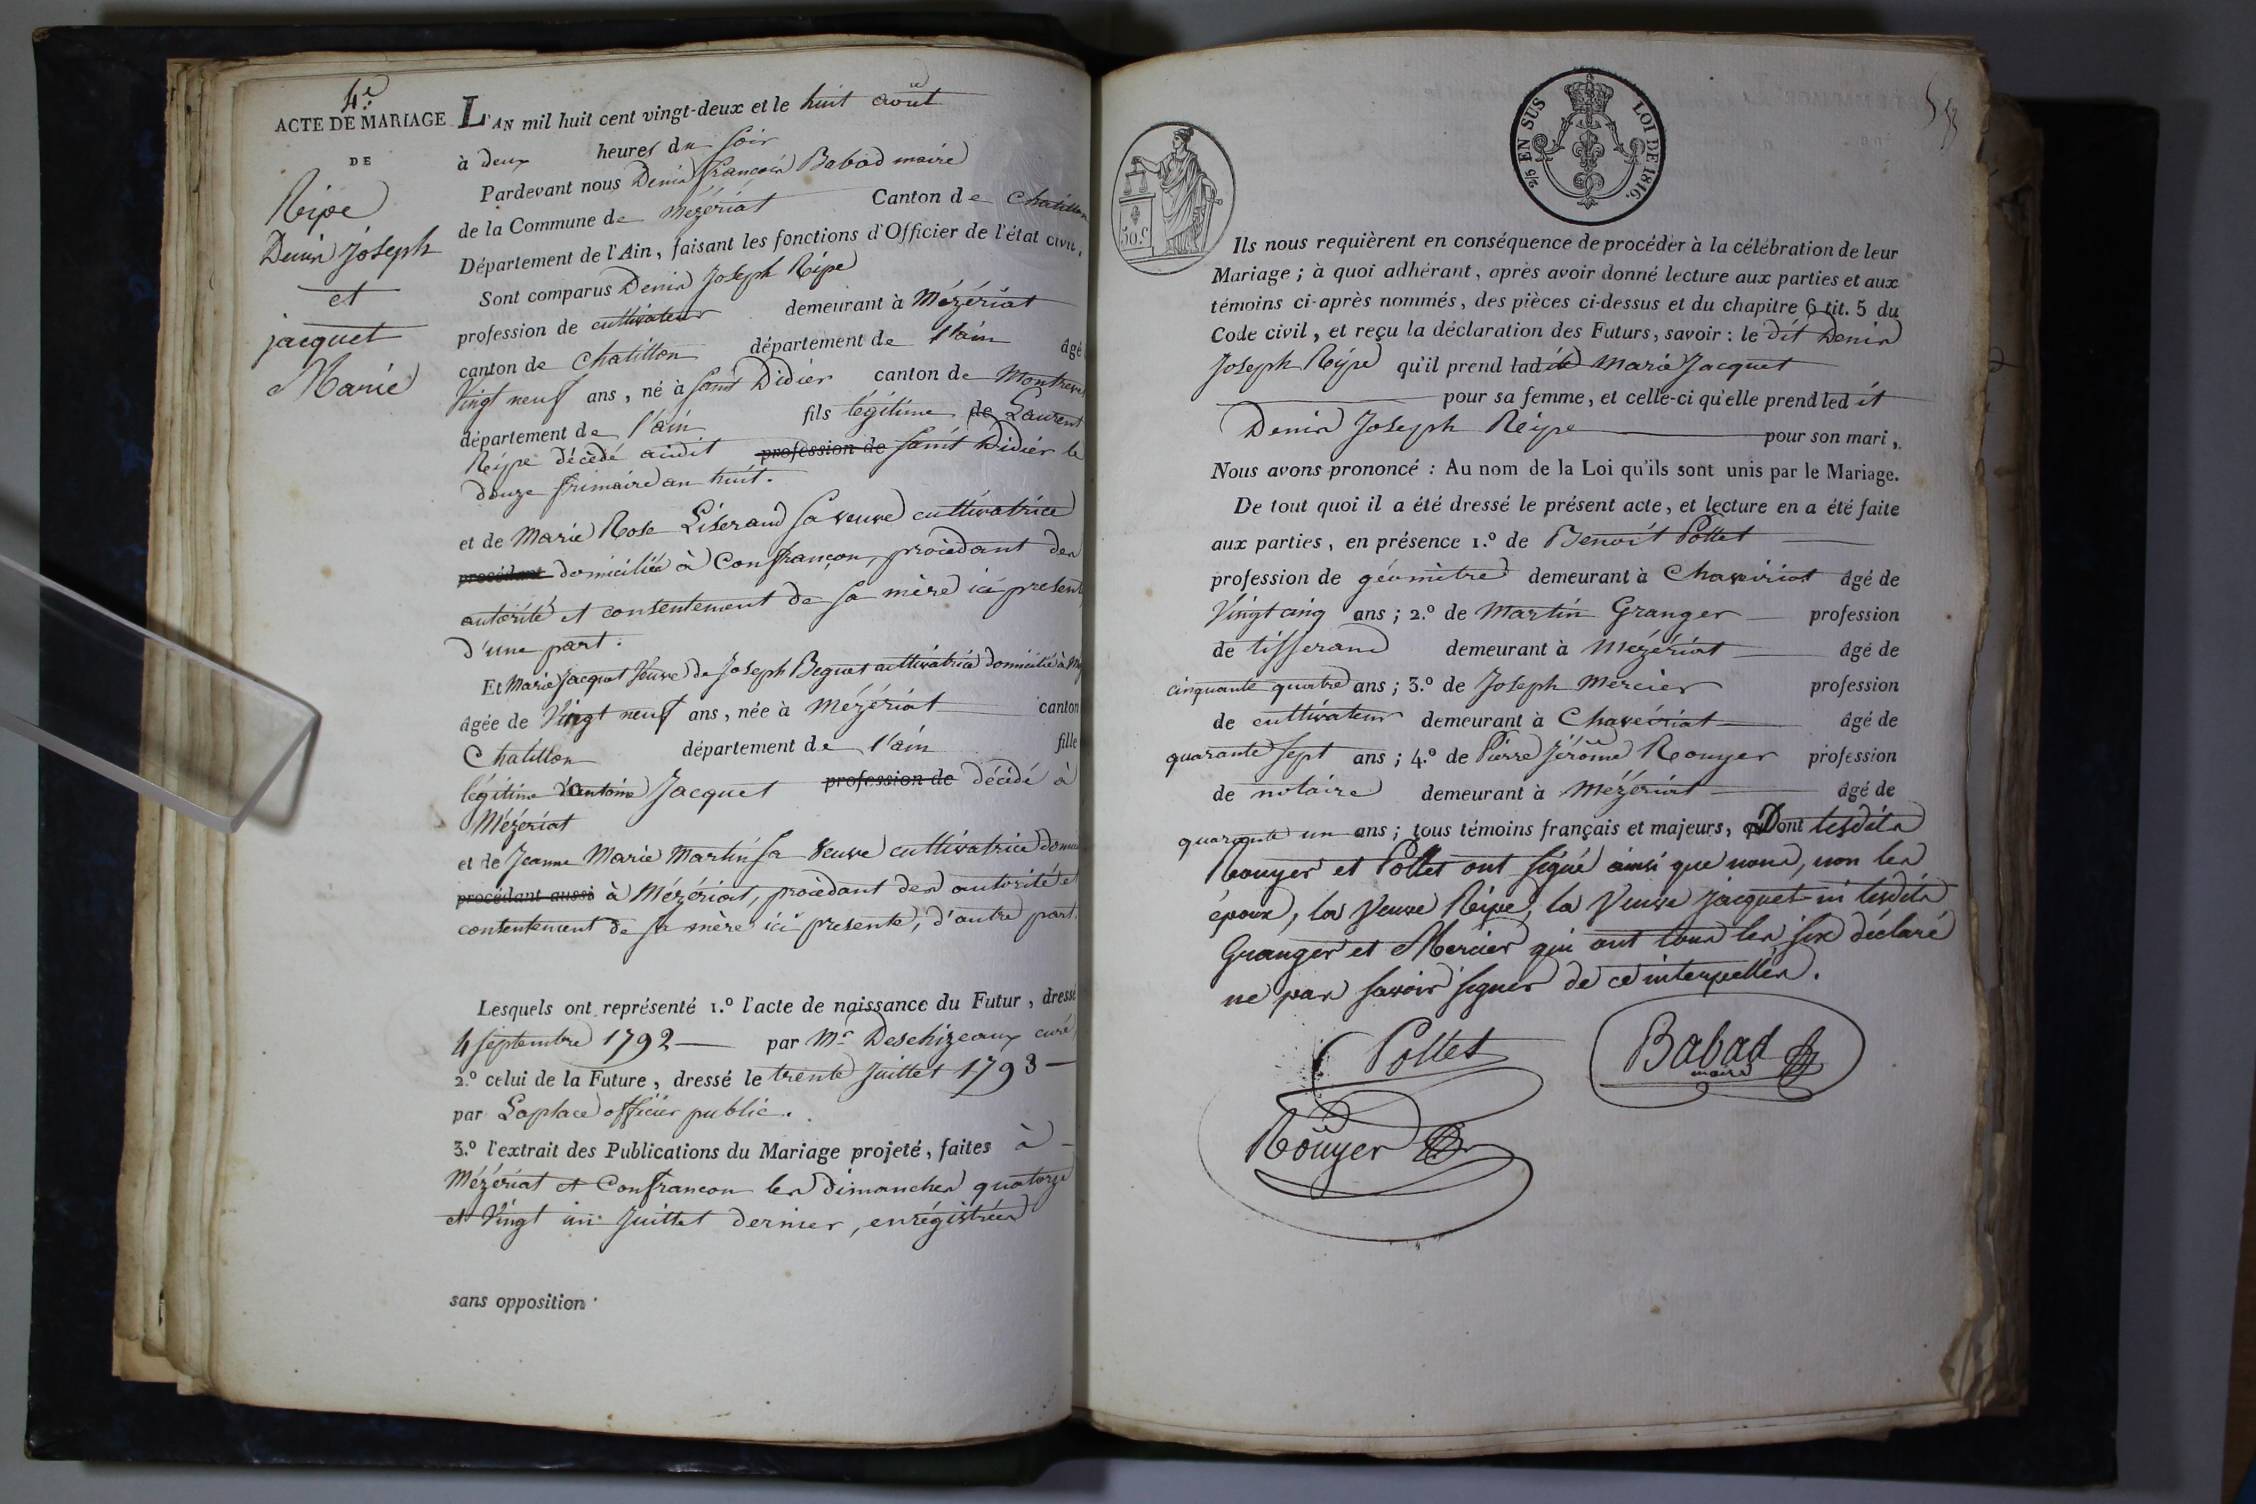 4.e
ACTE DE MARIAGE
DE
Ripe
Denis Joseph
et
jacquet
Marie
L'AN mil huit cent vingt-deux et le huit août
à deux heures du soir
Pardevant nous Denis françois Babad maire
de la Commune de Mézériat Canton de Chatillon
Département de l'Ain, faisant les fonctions d'Officier de l'état civil,
Sont comparus Denis Joseph Ripe
profession de cultivateur demeurant à Mézériat
canton de Chatillon département de l'ain âgé
Vingt neuf ans, né à saint Didier canton de Montrevel
département de l'ain fils légitime de Laurent
Ripe décédé audit profession de saint Didier le
douze frimaire an huit.
et de Marie Rose Liserand sa veuve cultivatrice
procédant domiciliée à Confrançon, procédant des
autorité et consentement de sa mère ici present
d'une part.
Et Marie Jacquet Veuve de Joseph Beguet cultivatrice domiciliée à
âgée de Vingt neuf ans, née à Mézériat canton
Chatillon département de l'ain fille
légitime d'antoine Jacquet profession de décédé à
Mézériat
et de Jeanne Marie Martin sa veuve cultivatrice
procédant aussi à Mézériat, procédant des autorité et
contentement de sa mère ici presente, d'autre part.
Lesquels ont représenté 1.º l'acte de naissance du Futur, dressé
4 septembre 1792 par Mr Deschizeaux curé,
2.º celui de la Future, dressé le trente Juillet 1793
par Laplace officier public.
3.º l'extrait des Publications du Mariage projeté, faites à
Mézériat et Confrancon les dimanches quatorze
et Vingt un Juillet dernier, enrégistrées
sans opposition
2/5 EN SUS LOI DE 1816.
50.c
Ils nous requièrent en conséquence de procéder à la célébration de leur
Mariage; à quoi adhérant, après avoir donné lecture aux parties et aux
témoins ci-après nommés, des pièces ci-dessus et du chapitre 6 tit. 5 du
Code civil, et reçu la déclaration des Futurs, savoir: le dit Denis
Joseph Ripe qu'il prend ladite Marie Jacquet
pour sa femme, et celle-ci qu'elle prend led it
Denis Joseph Ripe pour son mari,
Nous avons prononcé: Au nom de la Loi qu'ils sont unis par le Mariage.
De tout quoi il a été dressé le présent acte, et lecture en a été faite
aux parties, en présence 1.º de Benoît Pottet
profession de géomètre demeurant à Chaveiriat âgé de
Vingt cinq ans; 2.º de Martin Granger profession
de tisserand demeurant à Mézériat âgé de
cinquante quatre ans; 3.º de Joseph Mercier profession
de cultivateur demeurant à Chaveiriat âgé de
quarante sept ans; 4.º de Pierre Jérôme Rouyer profession
de notaire demeurant à Mézériat âgé de
quarante un ans; tous témoins français et majeurs, Dont lesdits
Rouyer et Pottet ont signé ainsi que nous, non les
époux, la Veuve Ripe, la Veuve Jacquet ni lesdits
Granger et Mercier qui ont tous les six déclaré
ne pas savoir signer de ce interpellés.
Pottet
Babad
maire
Rouyer